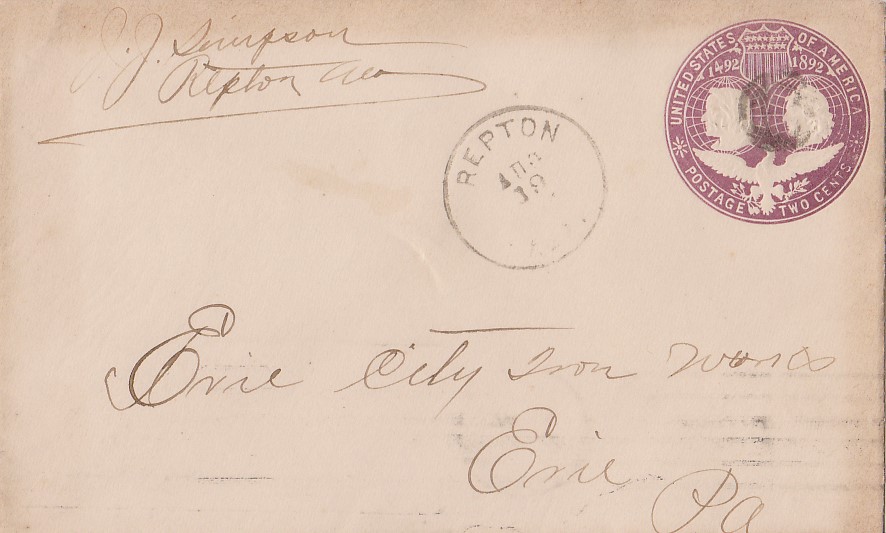 J. J. Simpson
Repton Ala
REPTON
APR
19
UNITED STATES OF AMERICA
1492 1892
POSTAGE TWO CENTS
Erie City Iron Works
Erie
Pa